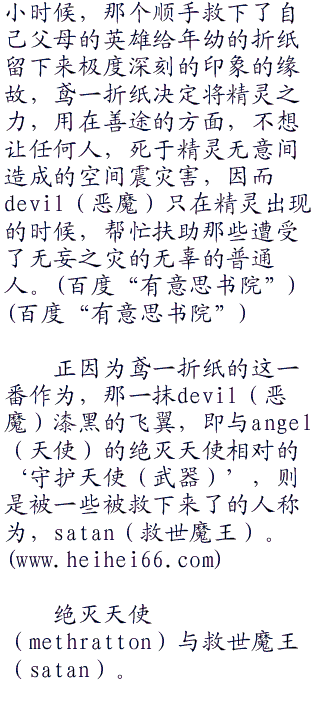 小时候，那个顺手救下了自
己父母的英雄给年幼的折纸
留下来极度深刻的印象的缘
故，鸢一折纸决定将精灵之
力，用在善途的方面，不想
让任何人，死于精灵无意间
造成的空间震灾害，因而
devil（恶魔）只在精灵出现
的时候，帮忙扶助那些遭受
了无妄之灾的无辜的普通
人。(百度“有意思书院”)
(百度“有意思书院”)
正因为鸢一折纸的这一
番作为，那一抹devil（恶
魔）漆黑的飞翼，即与angel
（天使）的绝灭天使相对的
‘守护天使（武器）’，则
是被一些被救下来了的人称
为，satan（救世魔王）。
(www.heihei66.com)
绝灭天使
（methratton）与救世魔王
（satan）。